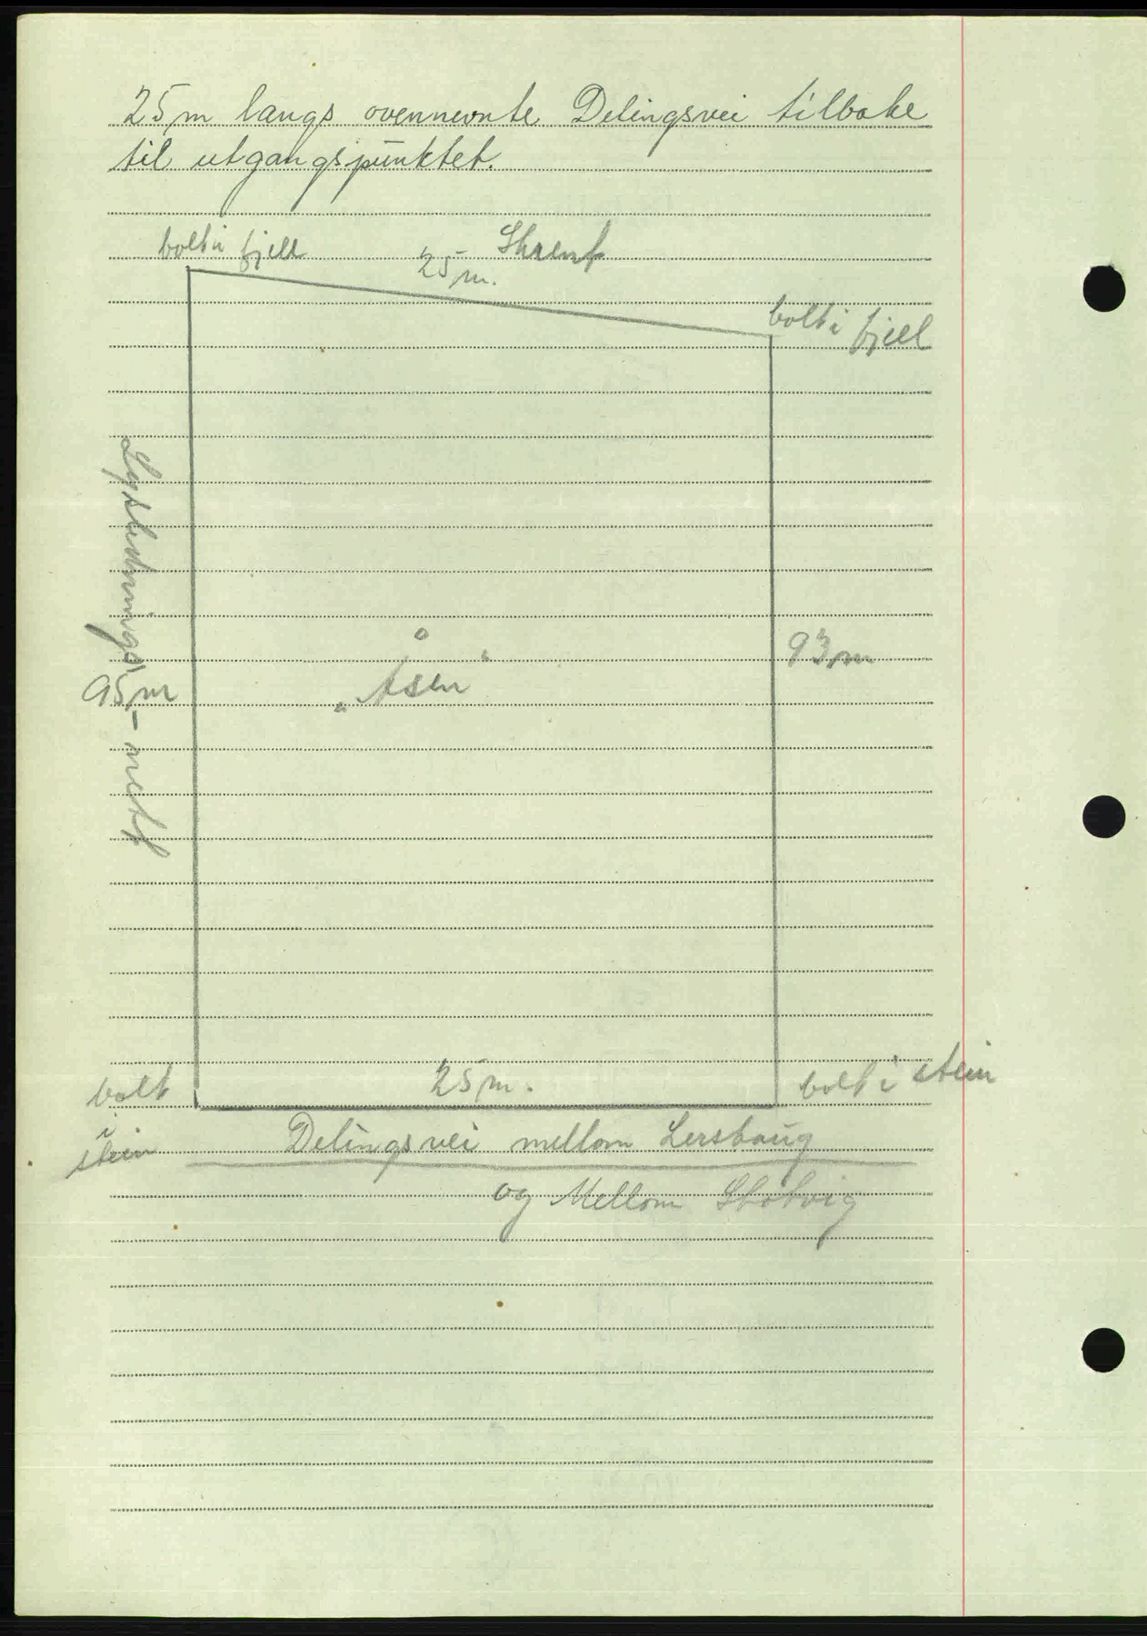 25 m langs ovennevnte Delingsvei tilbake
til utgangspunktet.
bolt i fjell
25 m.
Skrent
bolt i fjell
Lysledningsnett
95 m
"Åsen"
93 m
bolt
i
stein
25 m.
bolt i stein
Delingsvei mellom Lersbaug
og Mellom Skotvig